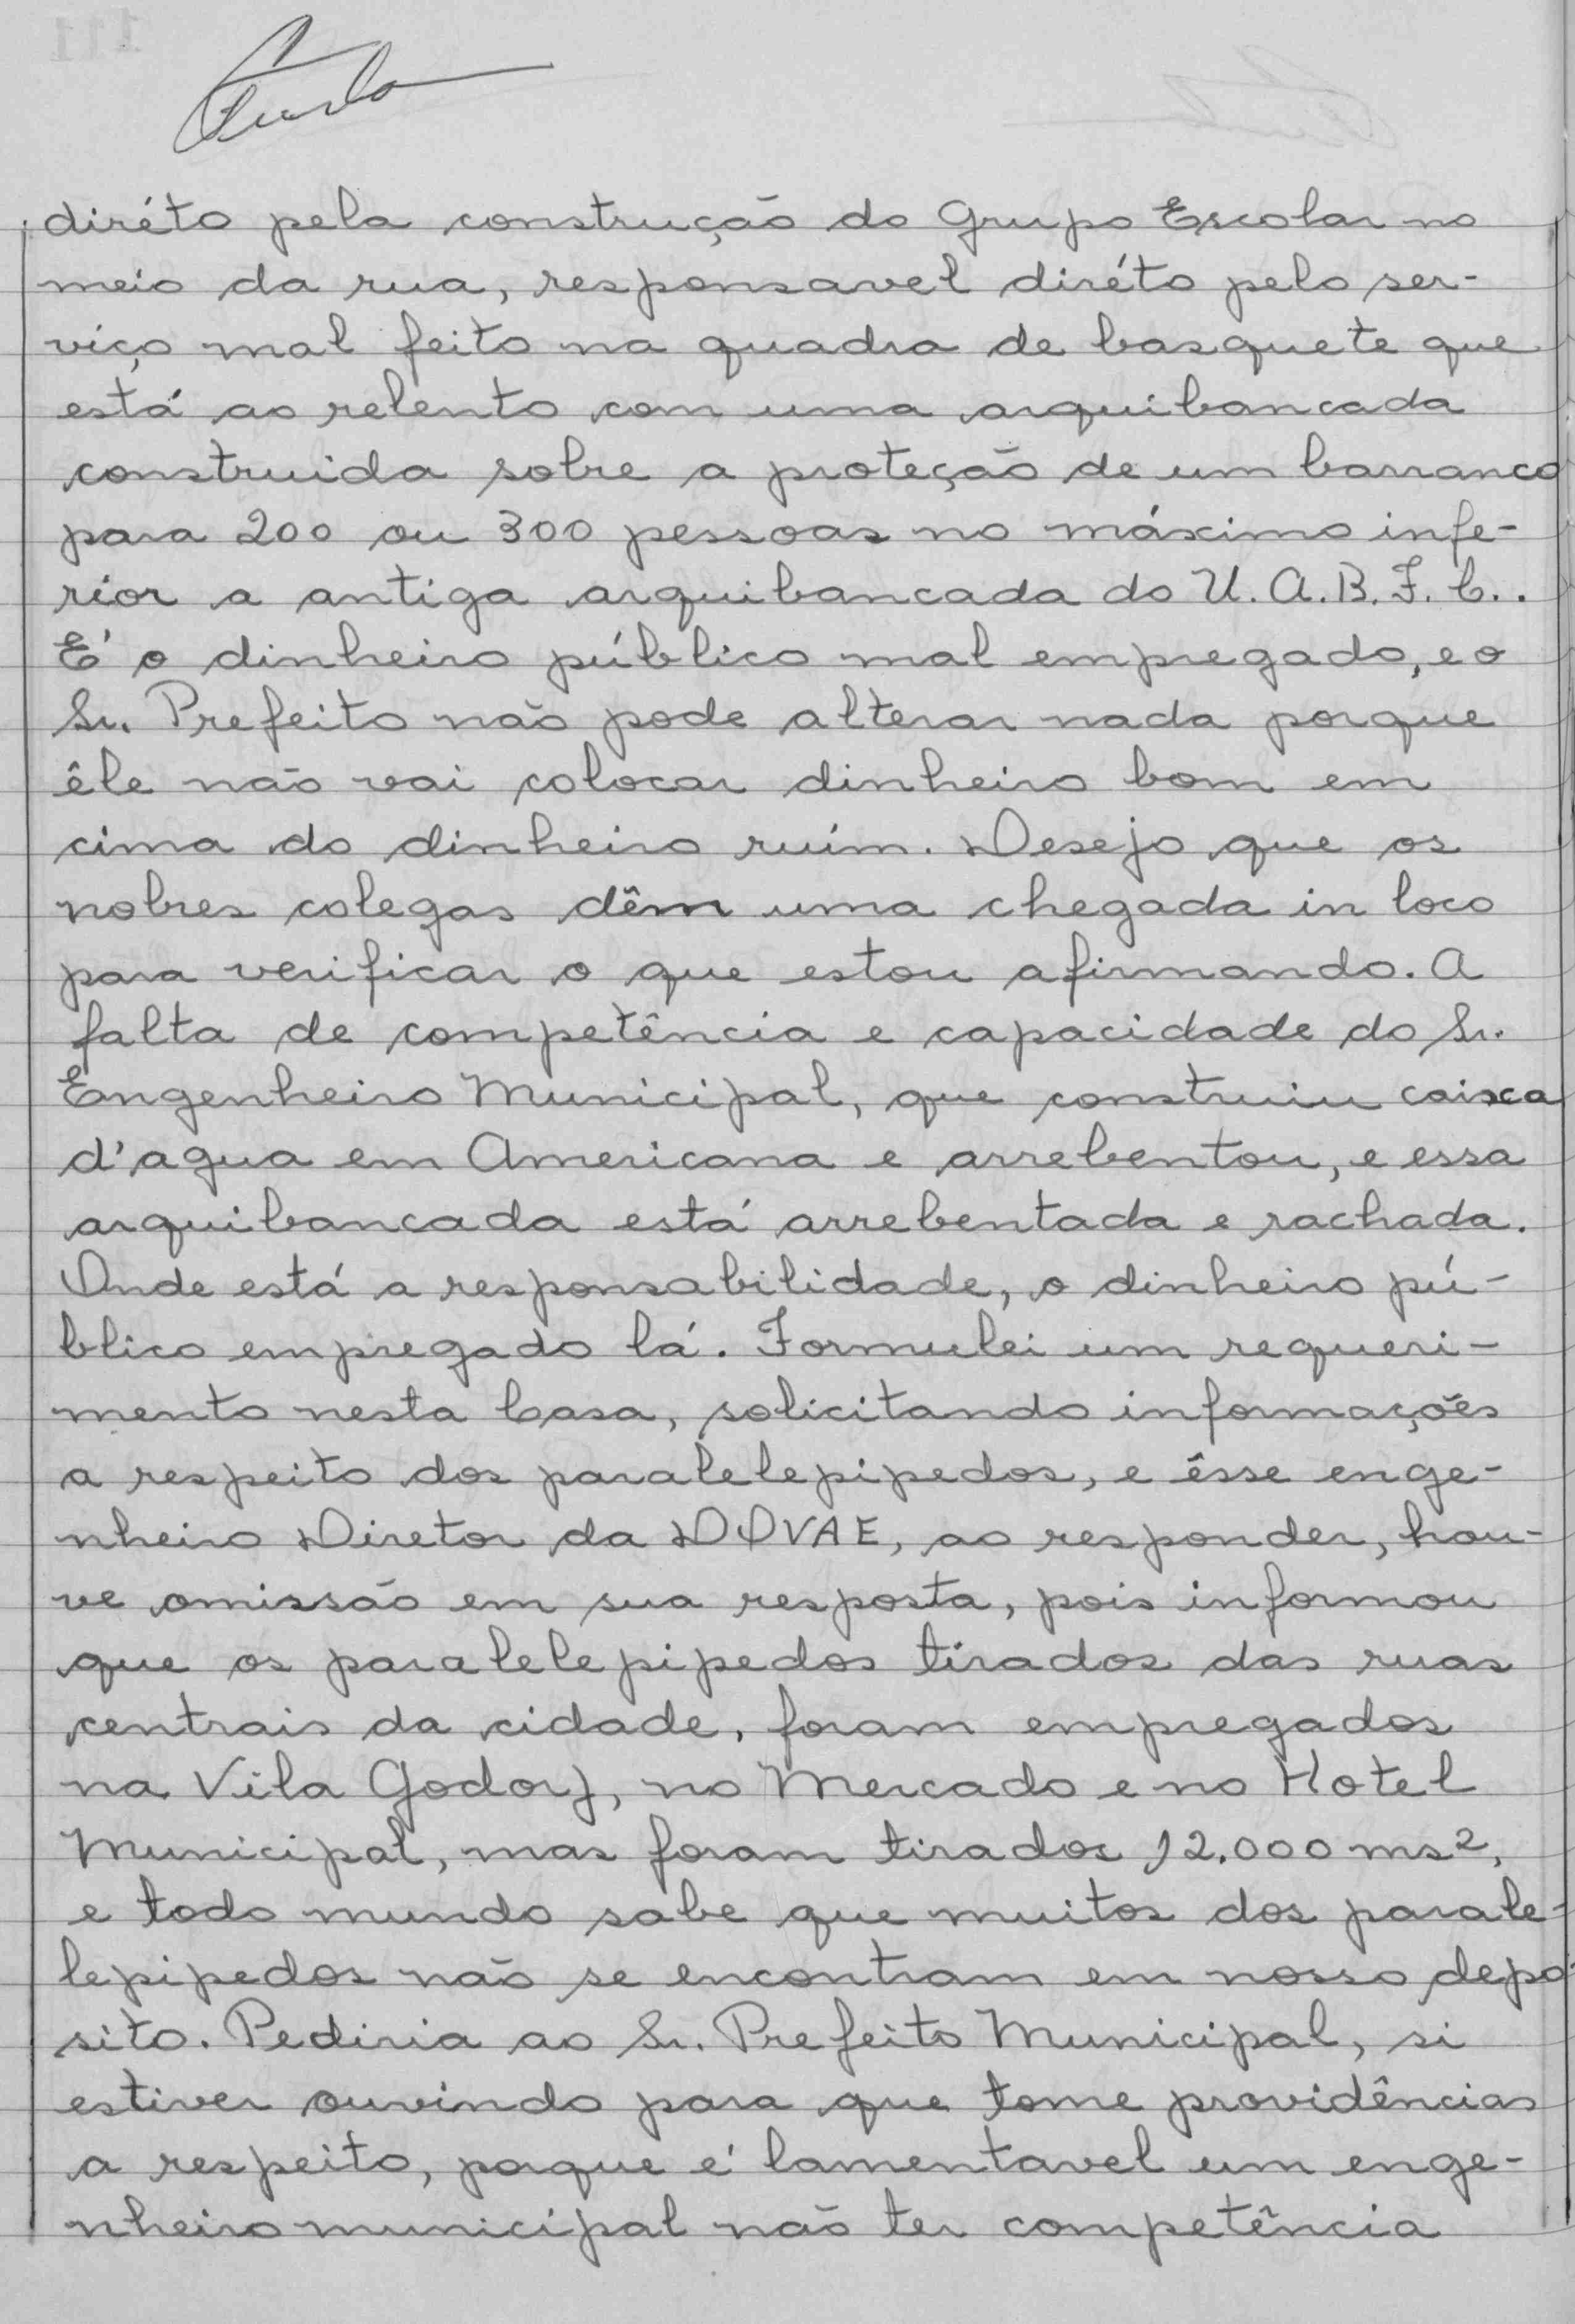 diréto pela construção do Grupo Escolar no
meio da rua, responsavel diréto pelo ser-
viço mal feito na quadra de basquete que
está ao relento com uma arquibancada
construida sobre a proteção de um barranco
para 200 ou 300 pessoas no máximo infe-
rior a antiga arquibancada do U.A.B.F.C..
É o dinheiro público mal empregado, e o
Sr. Prefeito não pode alterar nada porque
êle não vai colocar dinheiro bom em
cima do dinheiro ruím. Desejo que os
nobres colegas dêm uma chegada in loco
para verificar o que estou afirmando. A
falta de competência e capacidade do Sr.
Engenheiro Municipal, que construiu caixa
d'agua em Americana e arrebentou, e essa
arquibancada está arrebentada e rachada.
Onde está a responsabilidade, o dinheiro pú-
blico empregado lá. Formulei um requeri-
mento nesta Casa, solicitando informações
a respeito dos paralelepipedos, e êsse enge-
nheiro Diretor da DOVAE, ao responder, hou-
ve omissão em sua resposta, pois informou
que os paralelepipedos tirados das ruas
centrais da cidade, foram empregados
na Vila Godoy, no Mercado e no Hotel
Municipal, mas foram tirados 12.000 ms2,
e todo mundo sabe que muitos dos parale-
lepipedos não se encontram em nosso depo-
sito. Pediria ao Sr. Prefeito Municipal, si
estiver ouvindo para que tome providências
a respeito, poque é lamentavel um enge-
nheiro municipal não ter competência